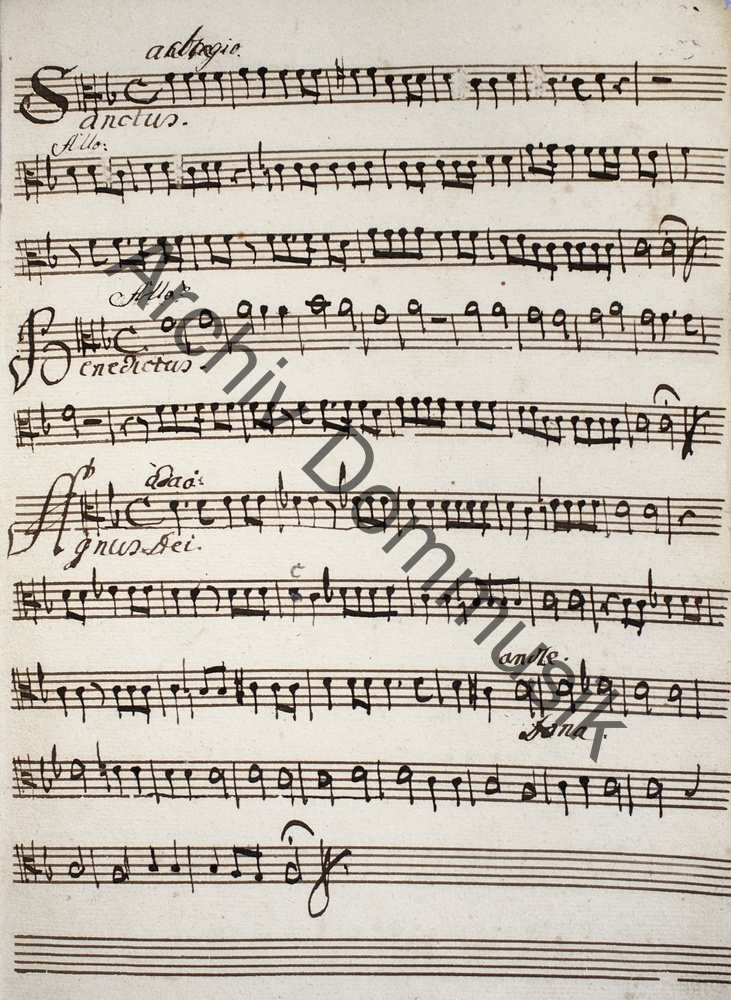 adagio.
Sanctus.
Allo:
Allo:
Benedictus.
adao:
Agnus Dei.
c
andte.
Dona.
Archiv Dommusik